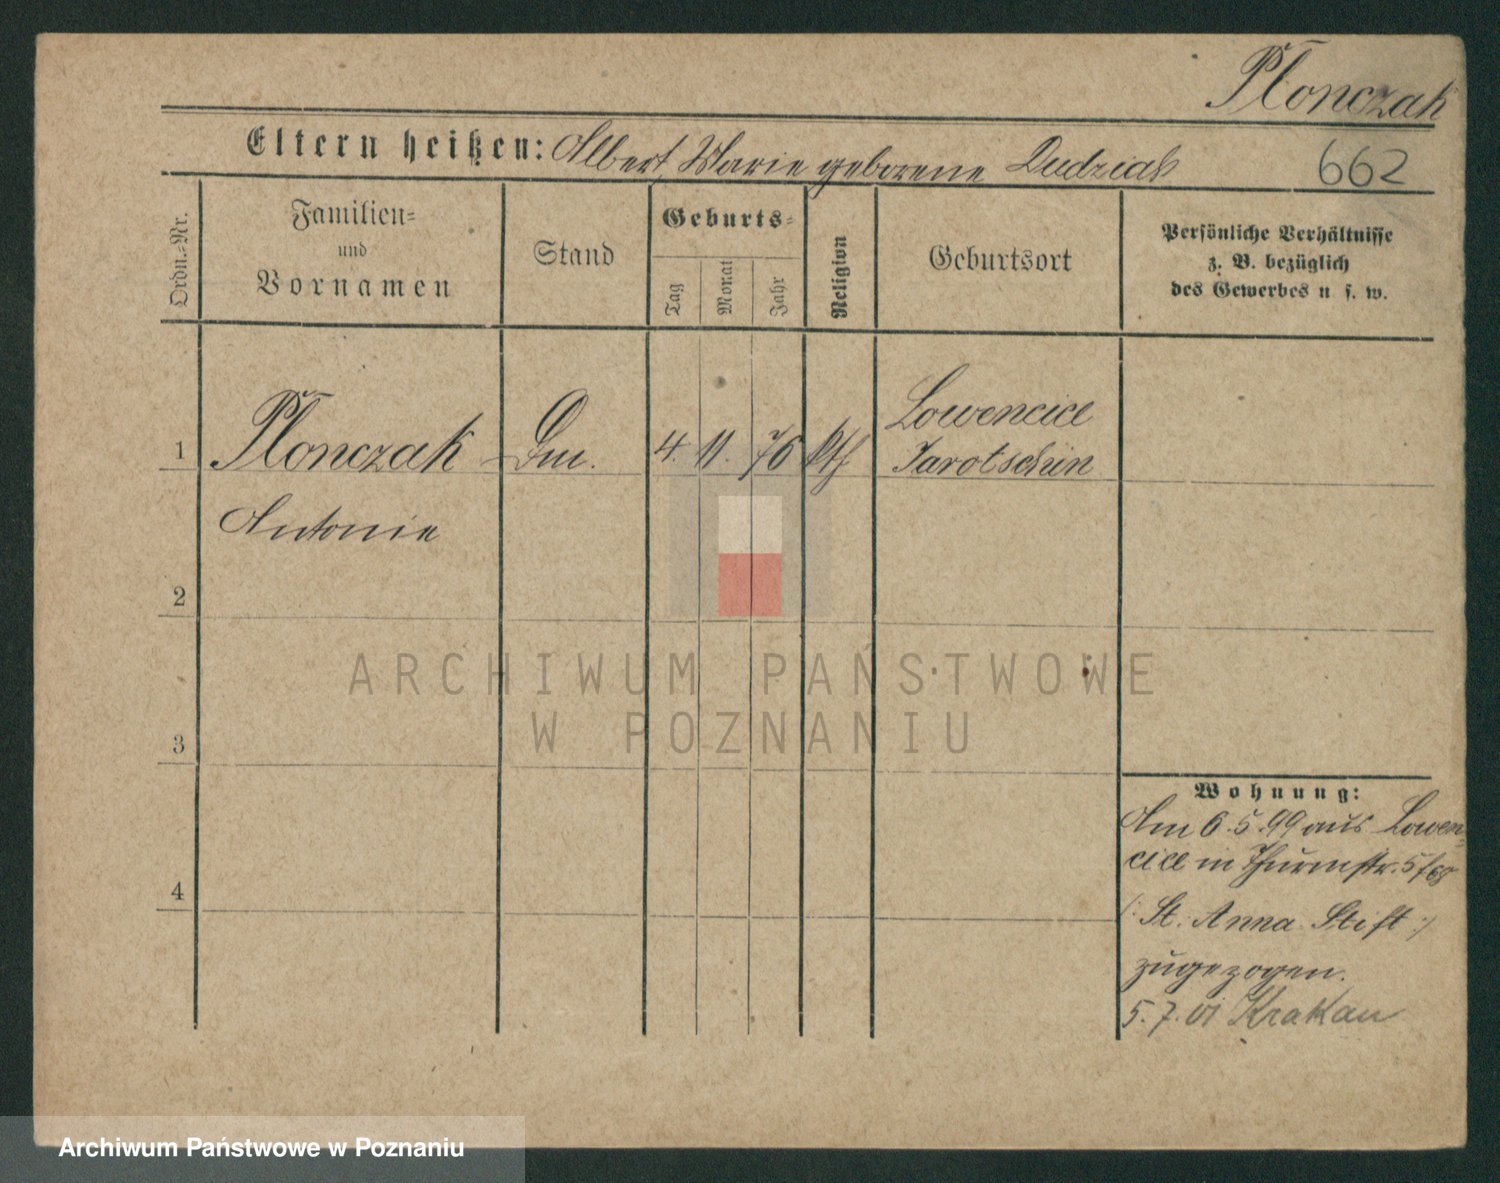 Plonczak
Eltern heißen: Albert, Marie geborene Dudziak
662
Ordn.-Nr.
Familien-
und
Vornamen
Stand
Geburts-
Tag
Monat
Jahr
Religion
Geburtsort
Persönliche Verhältnisse
z. B. bezüglich
des Gewerbes u s. w.
1
Plonczak
Antonie
4. 11. 76
kth
Lowencice
Jarotschin
2
3
4
Wohnung:
Am 6.5.99 aus Lowen-
cice in Thurmstr. 5/68
(: St. Anna Stift :)
zugezogen.
5.7.01 Krakau
ARCHIWUM PAŃSTWOWE
W POZNANIU
Archiwum Państwowe w Poznaniu